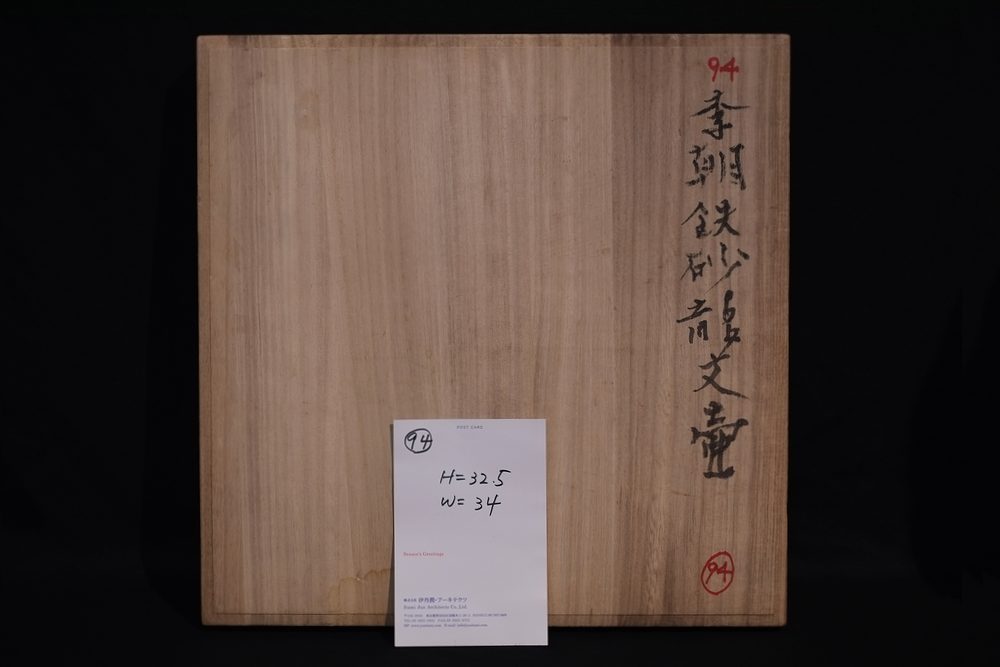 94
李朝鉄砂龍文壷
94
POST CARD
94
H=32.5
W=34
Season's Greetings
株式会社 伊丹潤・アーキテクツ
Itami Jun Architects Co., Ltd.